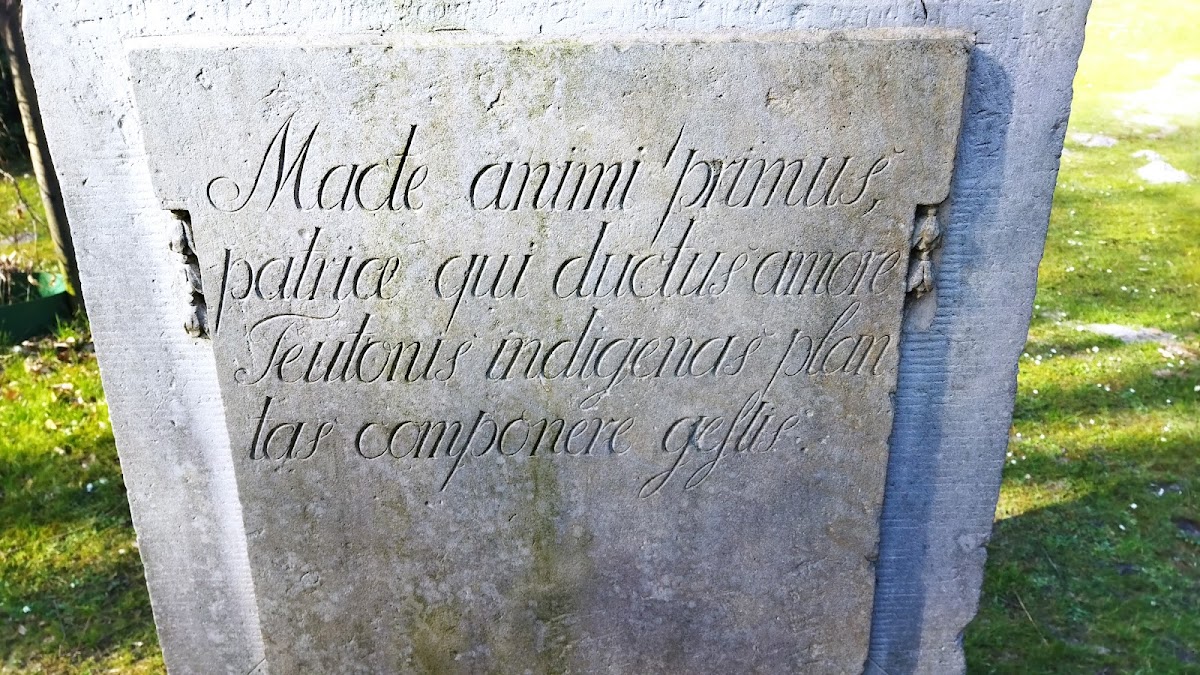 Macte animi primus,
patriæ qui ductus amore
Teutonis indigenas plan
tas componere gestis.